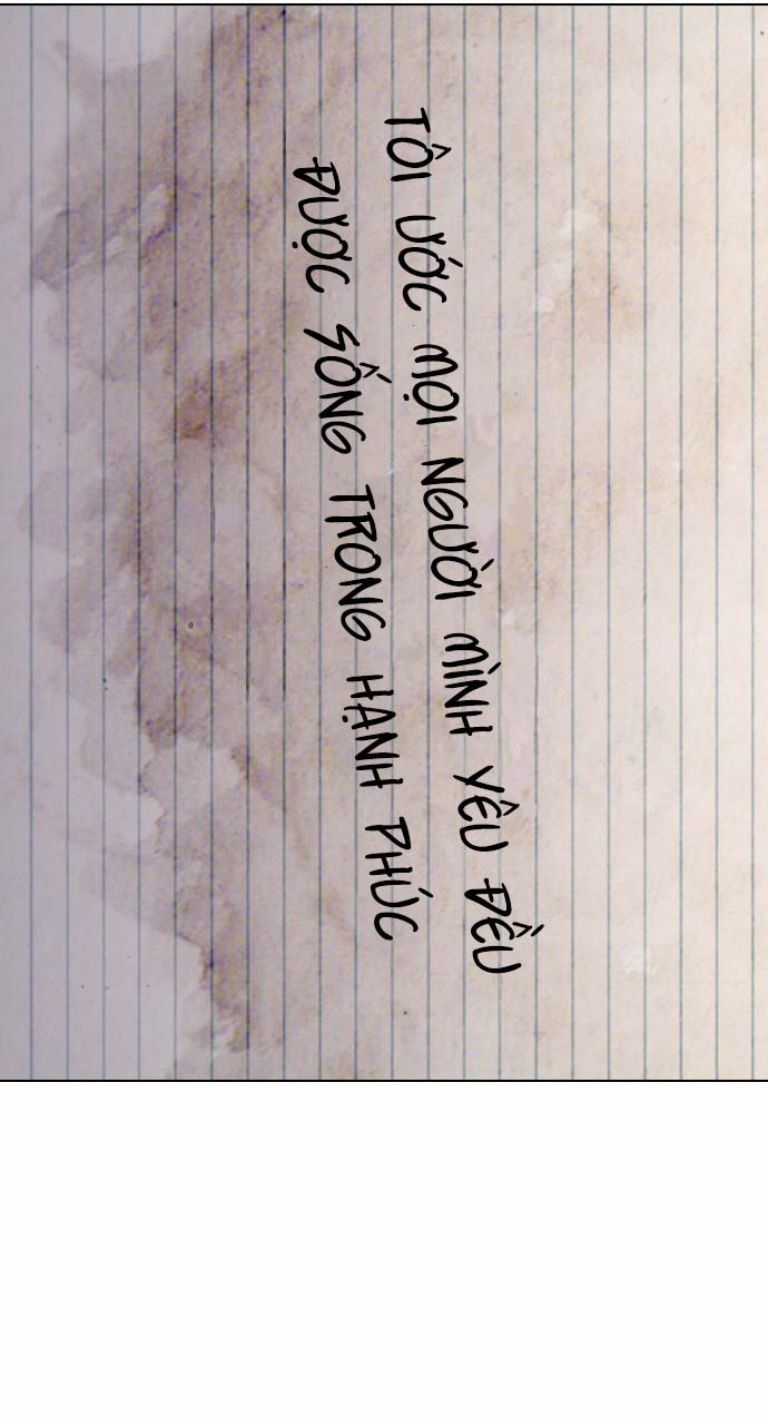 TÔI ƯỚC MỌI NGƯỜI MÌNH YÊU ĐỀU
ĐƯỢC SỐNG TRONG HẠNH PHÚC